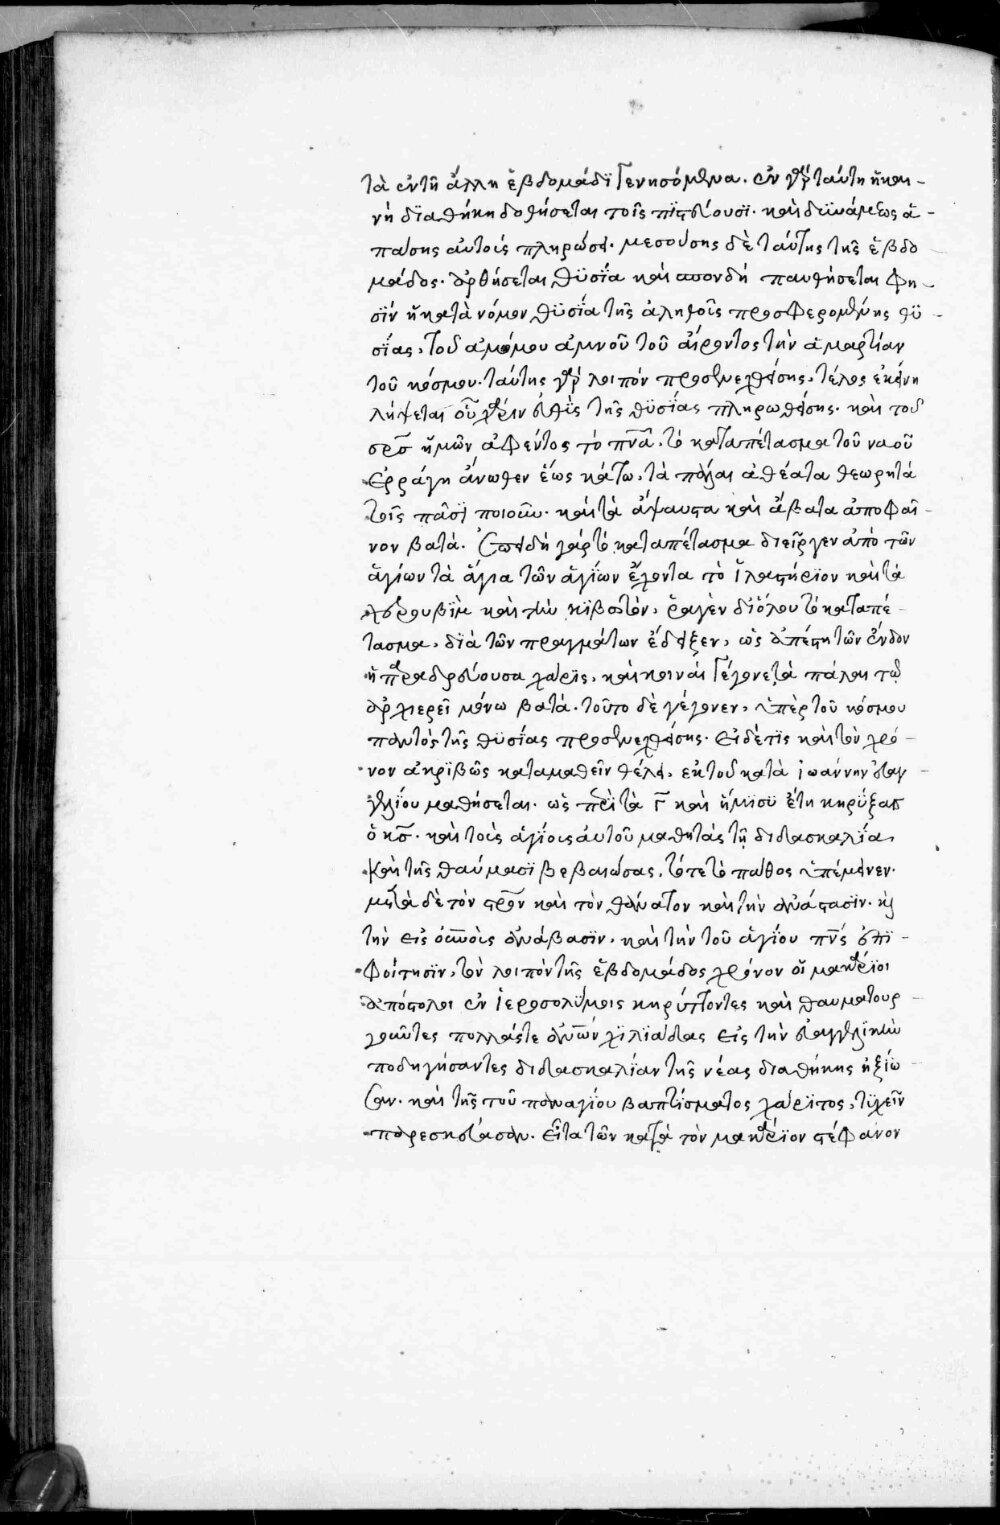 τὰ ἐν τῆ ἄλλη ἑβδομάδϊ γενησόμενα. ἐν γὰρ ταύτη ἡ και-
νὴ δϊαθήκη δοθήσεται τοῖς πϊστεύουσϊ. καὶ δϋνάμεως ἁ-
πάσης αὐτοὺς πληρώσει. μεσούσης δὲ ταύτης τῆς ἑβδο
μάδος. ἀρθήσεται θϋσΐα καὶ σπονδὴ παυθήσεται φη-
σϊν ἡ κατὰ νόμον θϋσΐα τῆς ἀληθοῦς προσφερομένης θϋ
σΐας, τοῦ ἀμώμου ἀμνοῦ τοῦ αἴροντος τὴν ἁμαρτίαν
τοῦ κόσμου. ταύτης γὰρ λοιπὸν προσενεχθείσης, τέλος ἐκείνη
λήψεται οὗ χάριν εὐθὺς τῆς θϋσΐας πληρωθείσης. καὶ τοῦ
σρσ ἡμῶν ἀφέντος τὸ πνα, τὸ καταπέτασμα τοῦ ναοῦ
ἐρράγη ἄνωθεν ἕως κάτω, τὰ πάλαι ἀθέατα θεωρητὰ
τοῖς πᾶσι ποιοῦν. καὶ τὰ ἄψαυστα καὶ ἄβατα ἀποφαῖ-
νον βατά. ἐπειδὴ γὰρ τὸ καταπέτασμα διεῖργεν ἀπὸ τῶν
ἁγίων τὰ ἅγια τῶν ἁγΐων ἔχοντα τὸ ἱλαστήρϊον καὶ τὰ
χερουβϊμ καὶ τὴν κϊβωτὸν, ῥαγὲν δϊόλου τὸ καταπέ-
τασμα, δϊὰ τῶν πραγμάτων ἔδειξεν, ὡς ἀπέστη τῶν ἔνδον
ἡ προεδρεύουσα χάρϊς, καὶ κοινὰ γέγονε τὰ πάλαι τῶ
ἀρχιερεῖ μόνω βατά. τοῦτο δὲ γέγονεν, ὑπὲρ τοῦ κόσμου
παντὸς τῆς θϋσΐας προσενεχθείσης. εἰ δέ τϊς καὶ τὸν χρό-
νον ἀκρϊβῶς καταμαθεῖν θέλει, ἐκ τοῦ κατὰ ἰωάννην εὐαγ-
γελΐου μαθήσεται. ὡς περὶ τὰ γ καὶ ἥμϊσϋ ἔτη κηρύξας
ὁ κσ. καὶ τοὺς ἁγΐους αὐτοῦ μαθητὰς τῆ διδασκαλία
καὶ τῆς θαύμασϊ βεβαιώσας, τότε τὸ πάθος ὑπέμεινεν.
μετὰ δὲ τὸν στρον καὶ τὸν θάνατον καὶ τὴν ἀνάστασϊν. καὶ
τὴν εἰς οὐνοὺς ἀνάβασϊν, καὶ τὴν τοῦ ἁγΐου πνς ἐπϊ-
φοίτησϊν, τὸν λοιπὸν τῆς ἑβδομάδος χρόνον οἱ μακάρϊοι
ἀπόστολοι ἐν ἱεροσολύμοις κηρύττοντες καὶ θαυματουρ-
γοῦντες πολλάς τε ἀνων χϊλϊάδας εἰς τὴν εὐαγγελϊκὴν
ποδηγήσαντες διδασκαλΐαν τῆς νέας δϊαθήκης ἠξίω-
σαν. καὶ τῆς τοῦ παναγίου βαπτίσματος χάρϊτος, τϋχεῖν
παρεσκεύασαν. εἶτα τῶν κατὰ τὸν μακάρϊον στέφανον